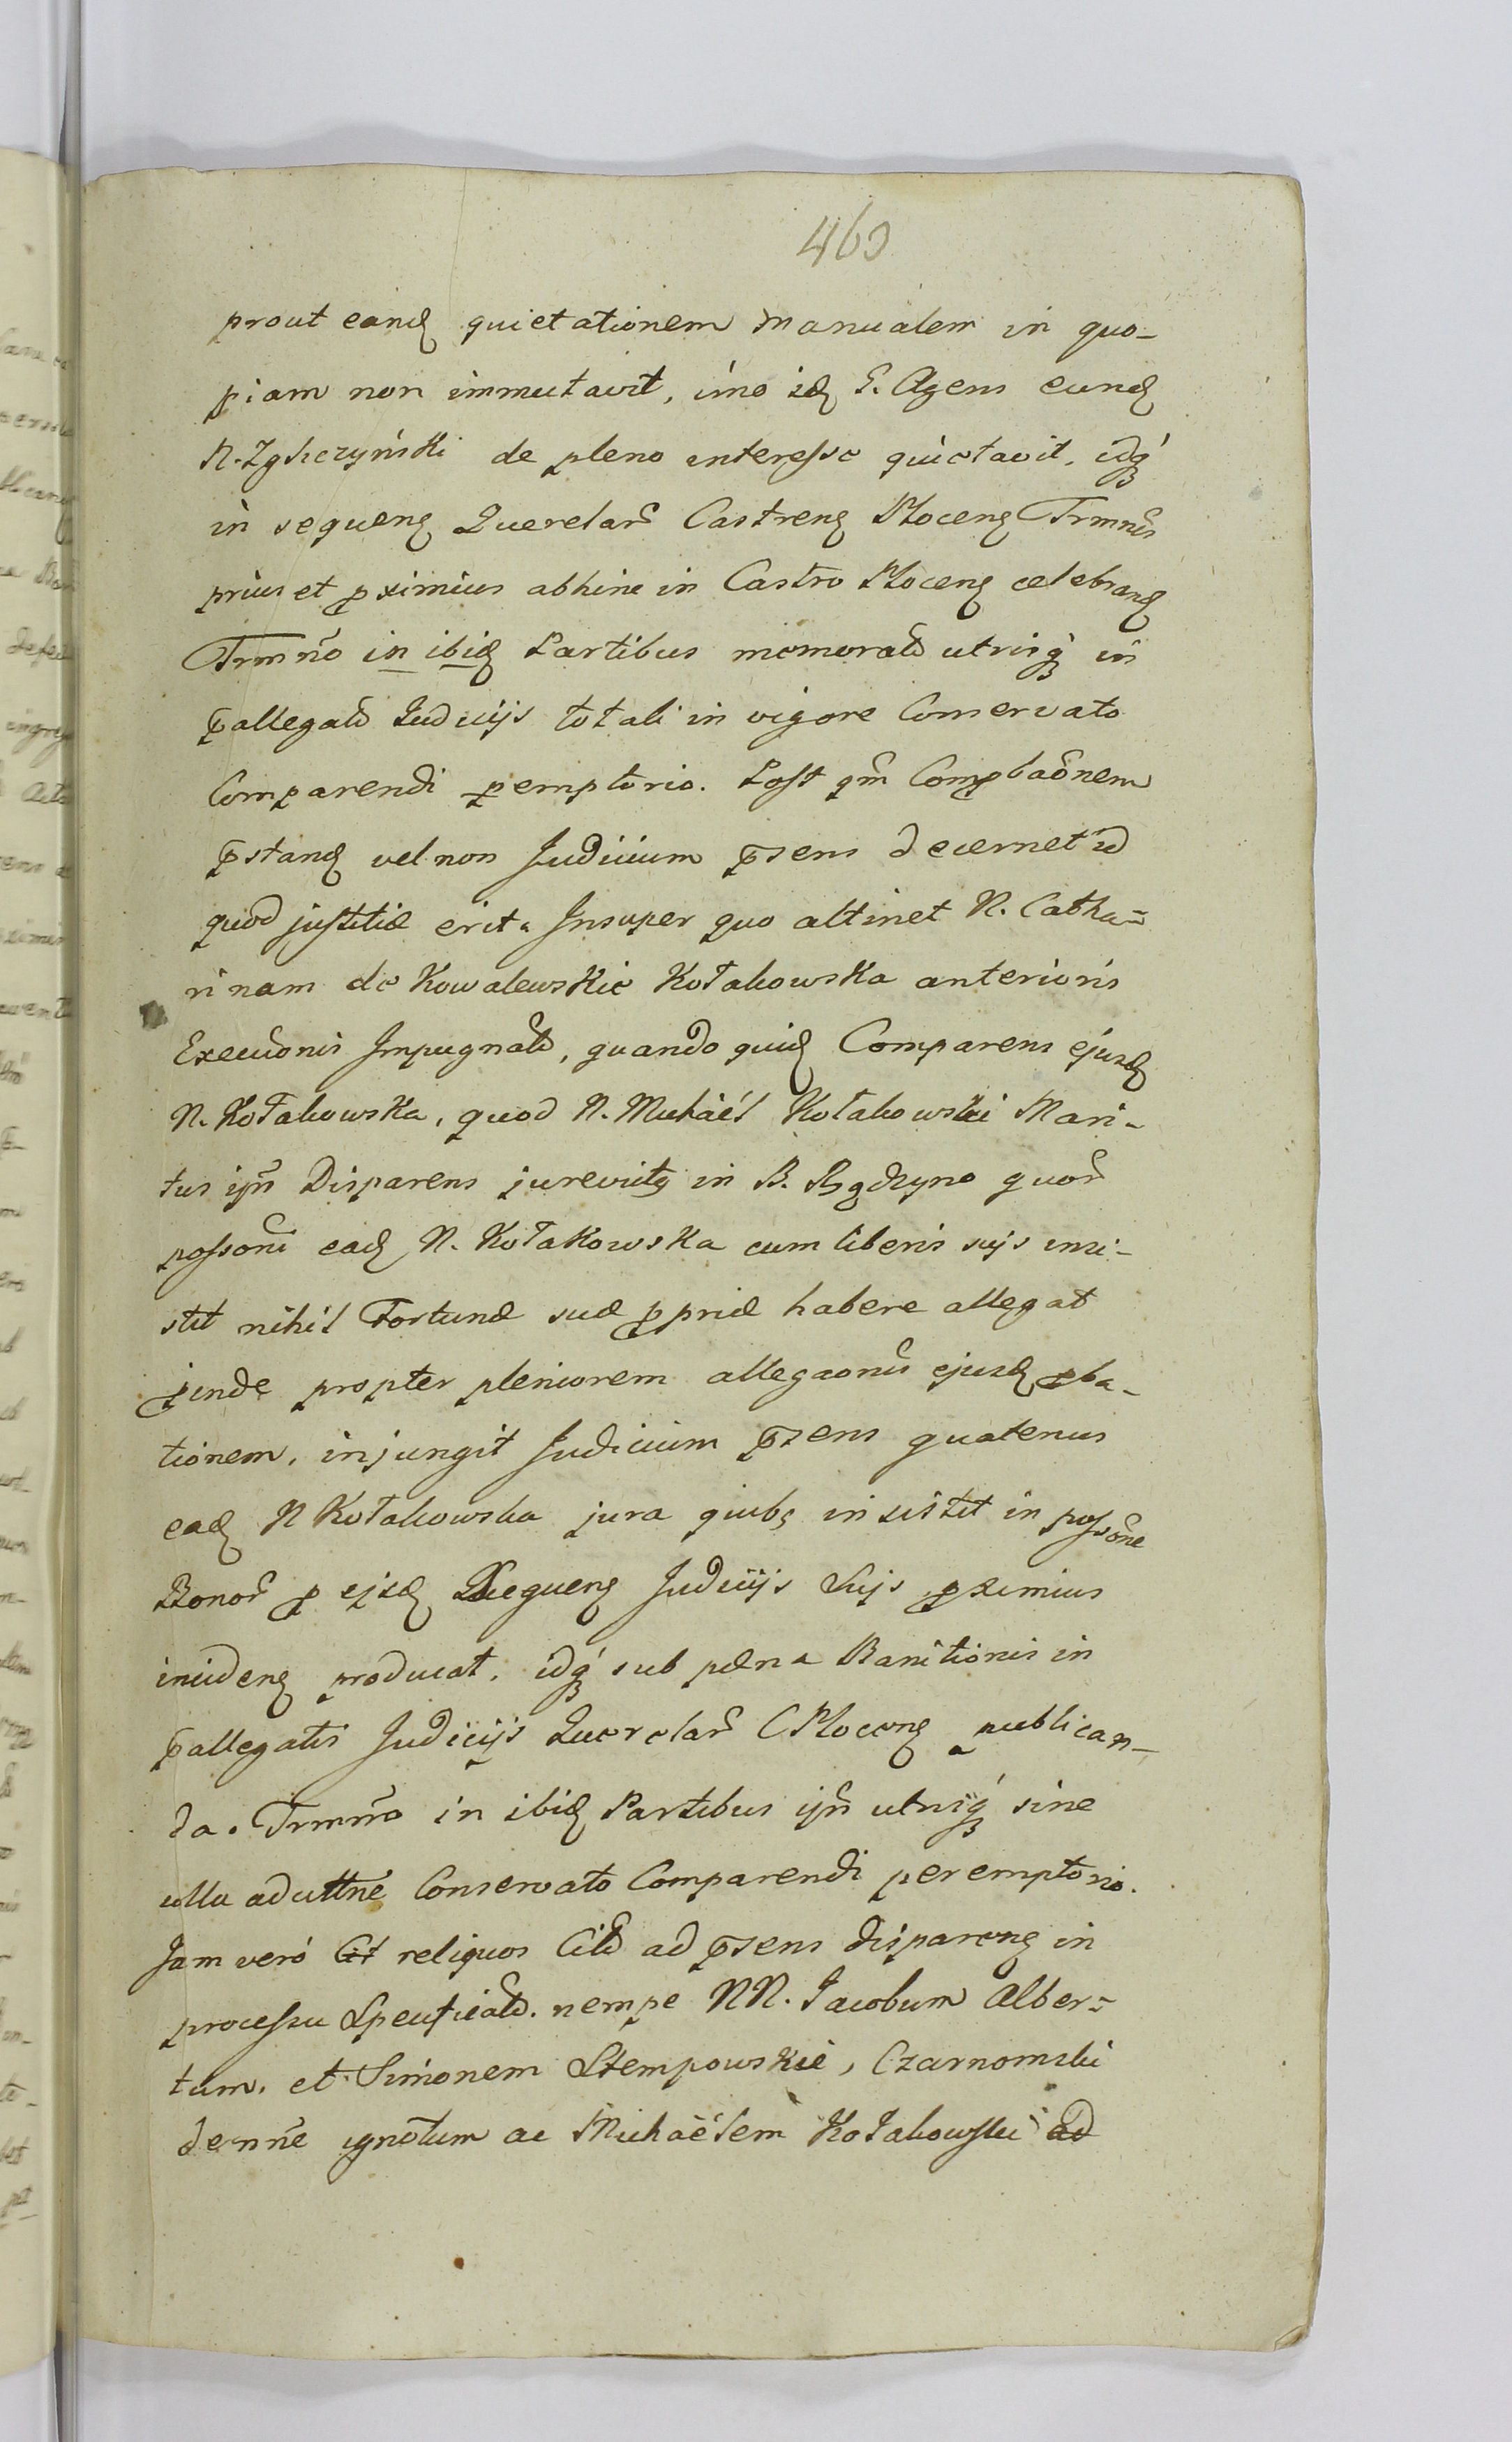 463
prout eand quietationem manualem in quo-
piam non immutavit, imo id G. Agens eund
N. Zgliczyński de pleno interesse quietavit, idq
in sequen Querelar Castren Plocen Trmnis
prius et pximius abhinc in Castro Plocen celebrand
Trmno in ibid Partibus memorat utrisq in
pallegat Judicijs totali in vigore Conservato
Comparendi pemptorio. Post qm Comprbaonem
pstand vel non Judicium psens decernet id
quod justitiæ erit. Insuper quo attinet N. Catha-
rinam de Kowalewskie Kołakowska anterioris
Execuonis Impugnat, quando quid Comparens ejusd
N. Kołakowska, quod N. Michaël Kołakowski Mari-
tus ipn Disparens jurevict in B. quor
possoni ead N. Kołakowska cum liberis suis insi-
stit nihil Fortunæ suæ ppriæ habere allegat
pinde propter pleniorem allegaonis ejusd pba-
tionem, injungit Judicium psens quatenus
ead N Kołakowska jura quibs insistit in possone
Bonor p ejsd Exequen Judicijs Suis pximius
inciden producat, idq sub pæna Banitionis in
pallegatis Judicijs Querelar C Plocen publican-
da. Trmno in ibid Partibus ipn utrisq sine
ulla aducttne Conservato Comparendi peremptorio.
Jam vero Cit reliquos Cit ad psens disparen in
processu Specificat. nempe NN. Jacobum Alber-
tum, et Simonem Stempowskie, Czarnomski
de nne ignotum ac Michaëlem Kołakowski ad